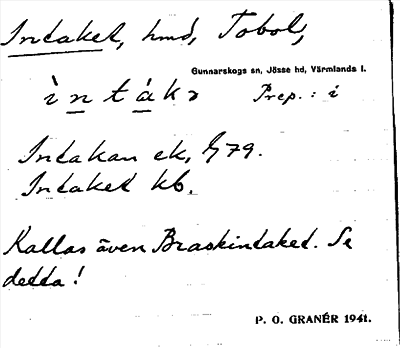 Intaket, hmd, Tobol,
Gunnarskogs sn, Jösse hd, Värmlands l.
ìntákə Prep.: i
Intakan ek, G79.
Intaket kb.
Kallas även Braskintaket. Se
detta!
P. O. GRANÉR 1941.